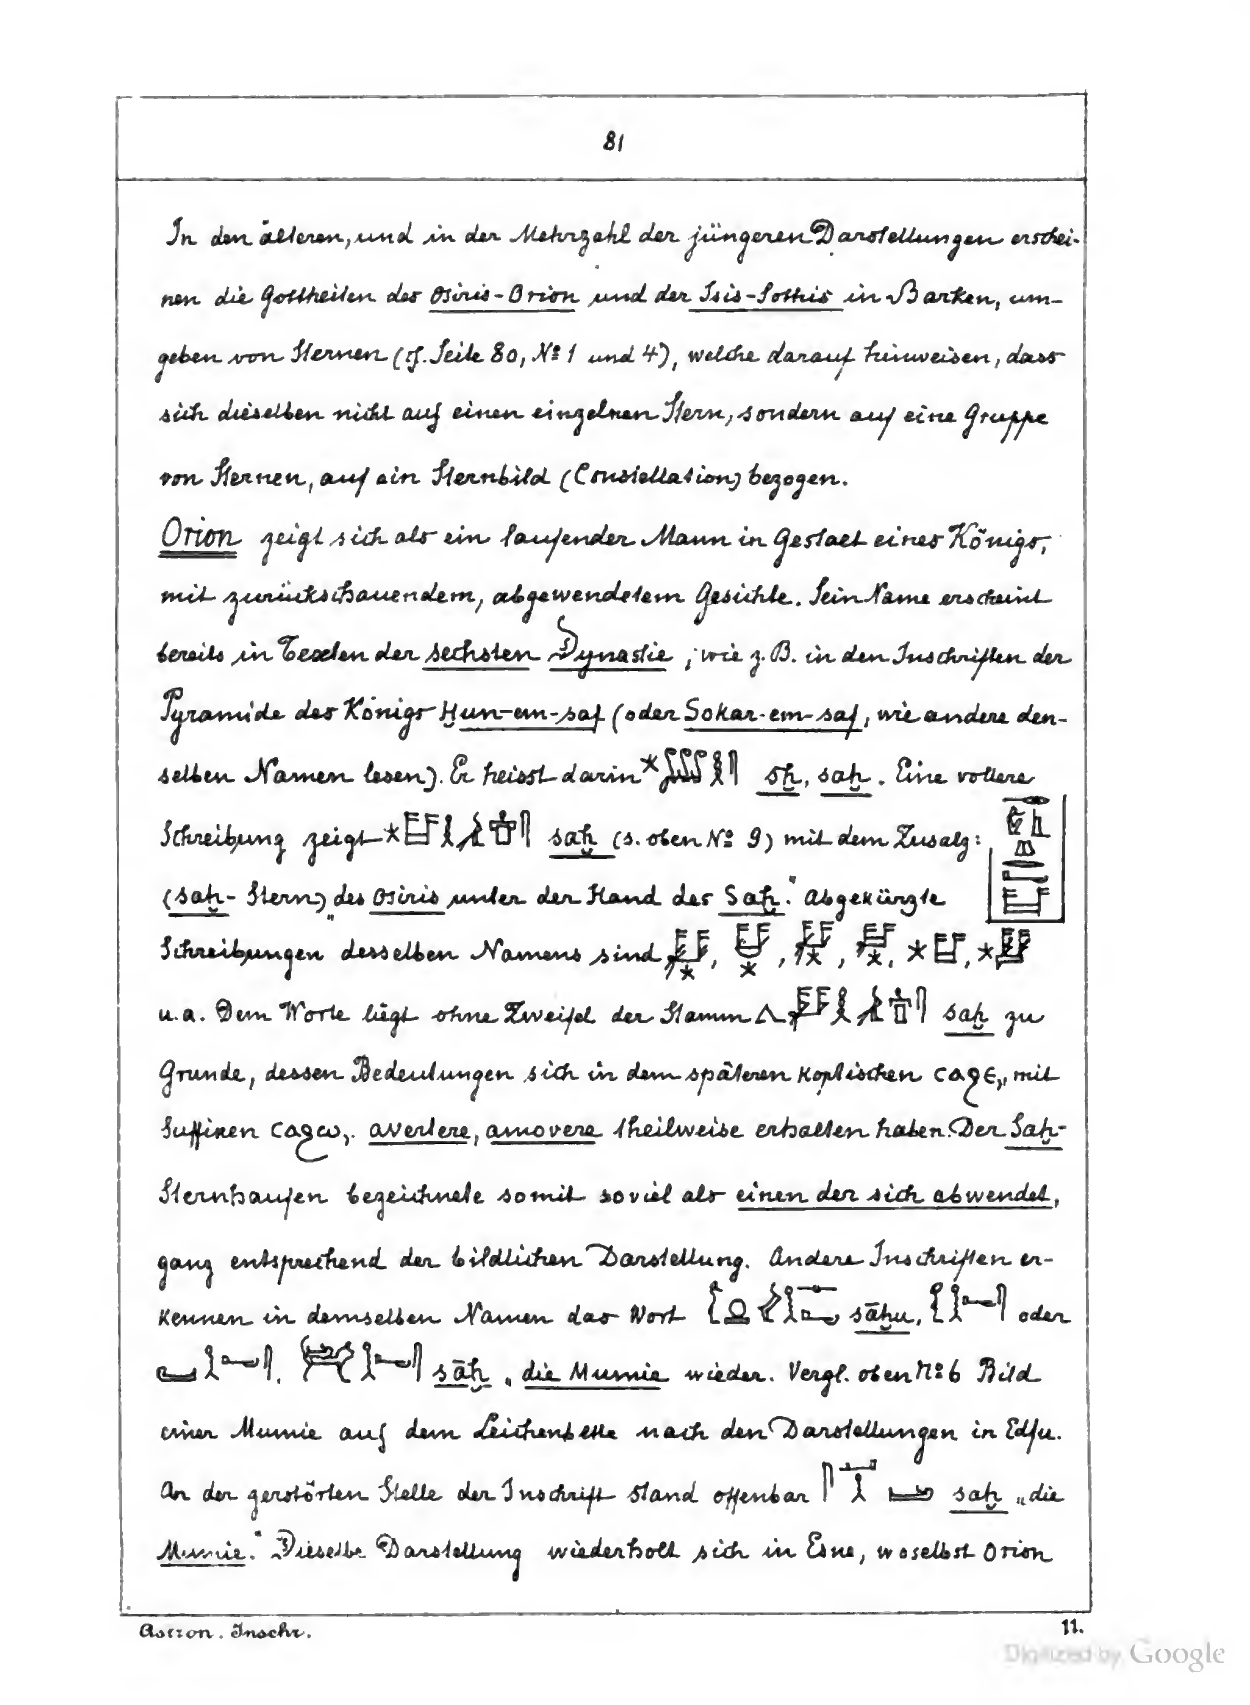 81
In den älteren, und in der Mehrzahl der jüngeren Darstellungen erschei-
nen die Gottheiten des Osiris-Orion und der Isis-Sothis in Barken, um-
geben von Sternen (cf. Seite 80, № 1 und 4), welche darauf hinweisen, dass
sich dieselben nicht auf einen einzelnen Stern, sondern auf eine Gruppe
von Sternen, auf ein Sternbild (Constellation) bezogen.
Orion zeigt sich als ein laufender Mann in Gestalt eines Königs,
mit zurückschauendem, abgewendetem Gesichte. Sein Name erscheint
bereits in Texten der sechsten Dynastie, wie z. B. in den Inschriften der
Pyramide des Königs Ḥun-em-saf (oder Sokar-em-saf, wie andere den-
selben Namen lesen). Er heisst darin sḥ, saḥ. Eine vollere
Schreibung zeigt saḥ (s. oben № 9) mit dem Zusatz:
(saḥ-Stern) „des Osiris unter der Hand des Saḥ." Abgekürzte
Schreibungen desselben Namens sind , , , , ,
u. a. Dem Worte liegt ohne Zweifel der Stamm saḥ zu
Grunde, dessen Bedeutungen sich in dem späteren koptischen ϲⲁϩⲉ, mit
Suffixen ϲⲁϩⲱ, avertere, amovere theilweise erhalten haben. Der Saḥ-
Sternhaufen bezeichnete somit soviel als einen der sich abwendet,
ganz entsprechend der bildlichen Darstellung. Andere Inschriften er-
kennen in demselben Namen das Wort sāḥu, oder
, sāḥ, die Mumie wieder. Vergl. oben № 6 Bild
einer Mumie auf dem Leichenbette nach den Darstellungen in Edfu.
An der zerstörten Stelle der Inschrift stand offenbar saḥ „die
Mumie." Dieselbe Darstellung wiederholt sich in Esne, woselbst Orion
Astron. Inschr.
11.
Digitized by Google